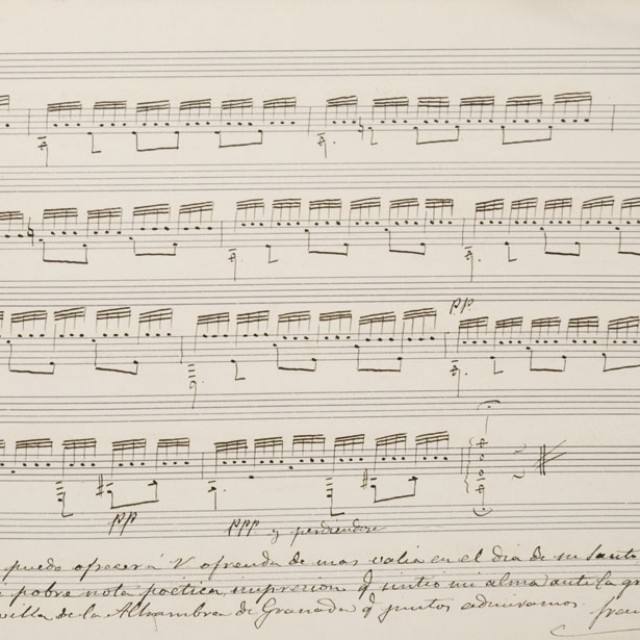 pp.
pp
ppp y perdiendose
puedo ofrecer á V ofrenda de mas valia en el dia de su Santo
pobre nota poetica, impresion q̃ sintio mi alma ante la
de la Alhambra de Granada q̃ juntos admiramos.